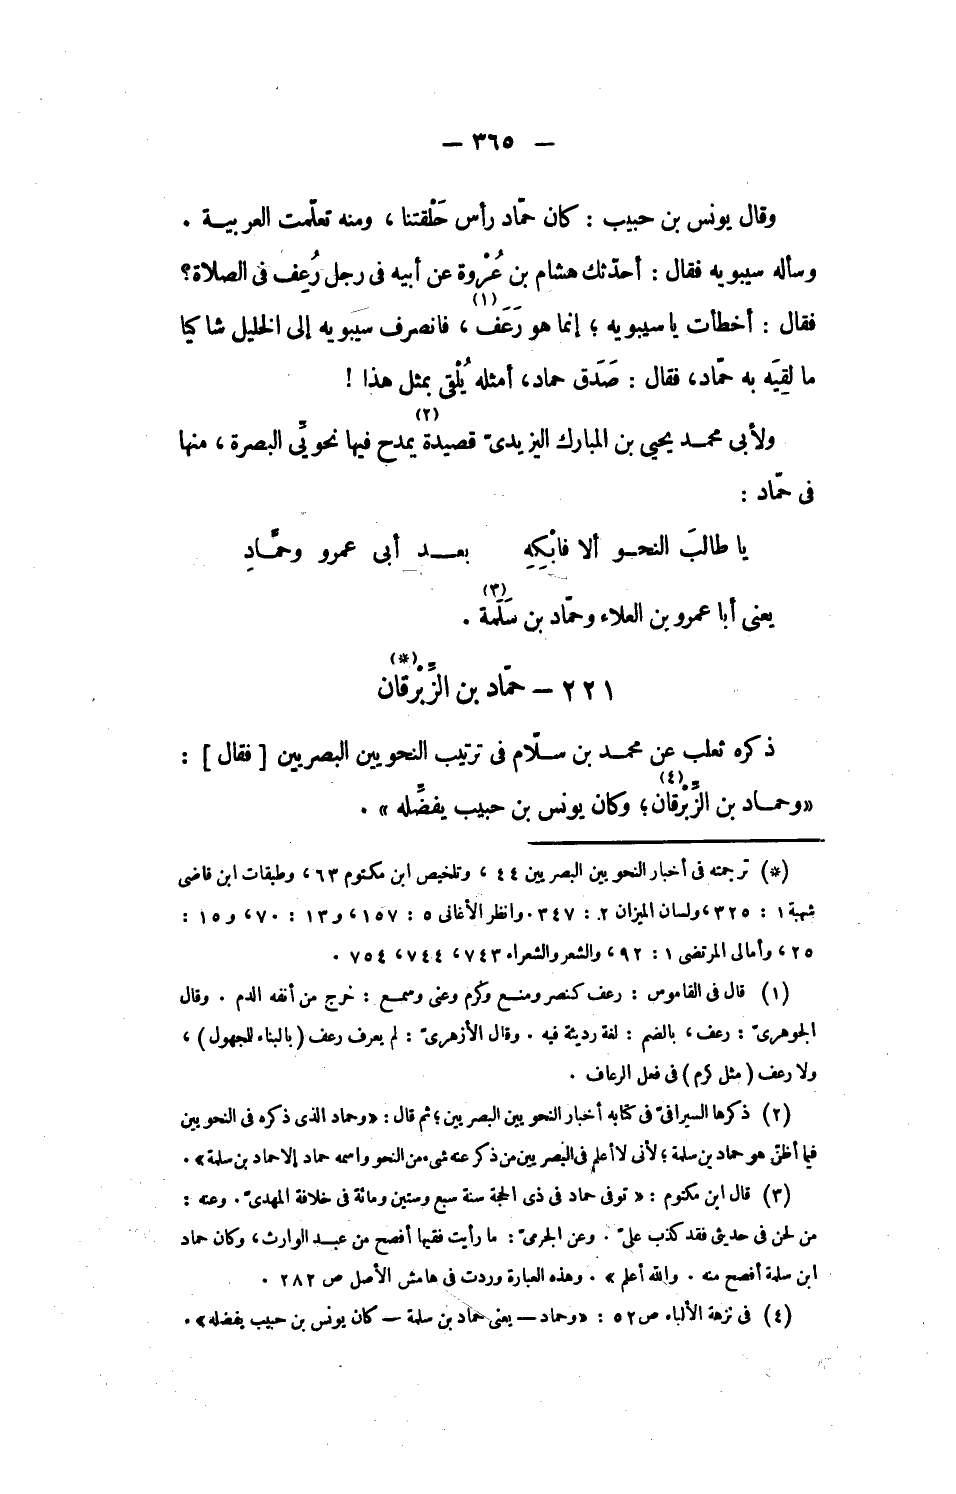 — ٣٦٥ —
وقال يونس بن حبيب : كان حمّاد رأس حَلْقتنا ، ومنه تعلّمت العربيــة .
وسأله سيبويه فقال : أحدّثك هشام بن عُرْوة عن أبيه فى رجل رُعِف فى الصلاة؟
(١)
فقال : أخطأت يا سيبويه ؛ إنما هو رَعَف ، فانصرف سيبويه إلى الخليل شاكيا
ما لقِيَه به حمّاد، فقال : صَدَق حماد، أمثله يُلْقى بمثل هذا !
(٢)
ولأبى محمــد يحيى بن المبارك اليزيدىّ قصيدة يمدح فيها نحويِّى البصرة ، منها
فى حمّاد :
يا طالبَ النحــو ألا فابْكِهِ بعــــد أبى عمرو وحمَّــادِ
(٣)
يعنى أبا عمرو بن العلاء وحمّاد بن سَلَمة .
(*)
٢٢١ — حمّاد بن الزِّبْرِقان
ذكره ثعلب عن محمــد بن ســلّام فى ترتيب النحويين البصريين [ فقال ] :
(٤)
«وحمــاد بن الزِّبْرقان؛ وكان يونس بن حبيب يفضِّله » .
(*) ترجمته فى أخبار النحويين البصريين ٤٤ ، وتلخيص ابن مكتوم ٦٣ ، وطبقات ابن قاضى
شهبة ١ : ٣٢٥ ، ولسان الميزان ٢ : ٣٤٧ . وانظر الأغانى ٥ : ١٥٧ ، و ١٣ : ٧٠ ، و ١٥ :
٢٥ ، وأمالى المرتضى ١ : ٩٢ ، والشعر والشعراء ٧٤٣ ، ٧٤٤ ، ٧٥٤ .
(١) قال فى القاموس : رعف كنصر ومنــع وكرم وعنى وسمــع : خرج من أنفه الدم . وقال
الجوهرىّ : رعف ، بالضم : لغة رديئة فيه . وقال الأزهرىّ : لم يعرف رعف (بالبناء للجهول) ،
ولا رعف (مثل كرم) فى فعل الرعاف .
(٢) ذكرها السيرافىّ فى كتابه أخبار النحويين البصريين ؛ ثم قال : «وحماد الذى ذكره فى النحويين
فيما أظنّ هو حماد بن سلمة ؛ لأنى لا أعلم فى البصريين من ذكر عنه شىء من النحو واسمه حماد إلا حماد بن سلمة» .
(٣) قال ابن مكتوم : « توفى حماد فى ذى الحجة سنة سبع وستين ومائة فى خلافة المهدىّ . وعنه :
من لحن فى حديثى فقد كذب علىّ . وعن الجرمىّ : ما رأيت فقيها أفصح من عبــد الوارث، وكان حماد
ابن سلمة أفصح منه . والله أعلم » . وهذه العبارة وردت فى هامش الأصل ص ٢٨٢ .
(٤) فى نزهة الألباء ص ٥٢ : «وحماد — يعنى حماد بن سلمة — كان يونس بن حبيب يفضله» .